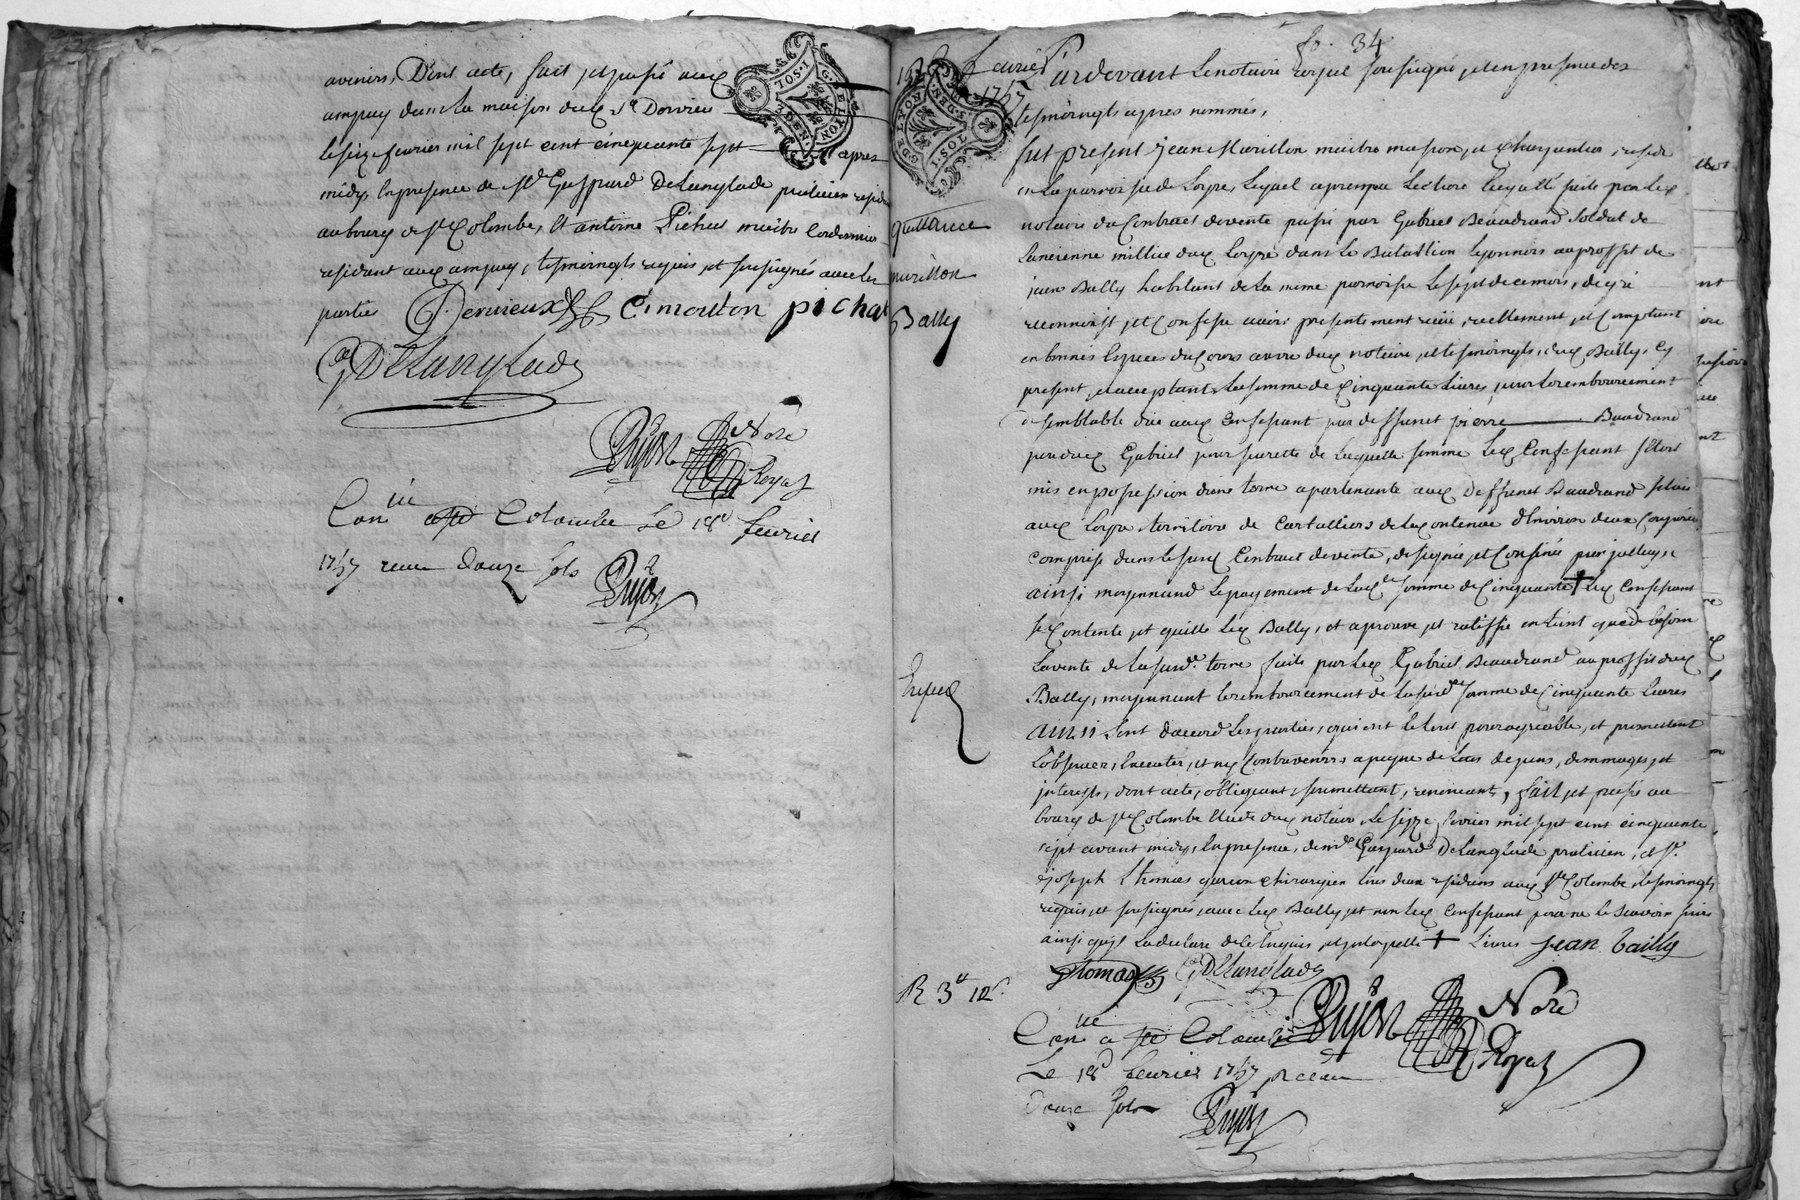 avenirs, Dont acte, fait et passé aux
ampuy dans la maison dud. Sr Dervieu
le seize fevrier mil sept cent cinquante sept apres
midy, en presence de Me Gaspard Delanglade praticien resid.
au bourg de Ste Colombe, Et antoine Pichat maitre Cordonnier
residant aux ampuy, tesmoingts requis, et soussignés avec les
parties Dervieux C. mouton pichat
G Delanglade
Dujon Nore
Royal
Con.lé a Ste Colombe Le 18e feurier
1757 receu Douze sols
Dujon
G. DE LYON
1. SOL. DEN.
fo. 34.
16 feurier
1757
Pardevant Le notaire royal soussigné, et en presence des
tesmoingts apres nommés,
quittance
marillon
Bally
fut present jean Marillon maitre masson, et charpentier, resid.
en la parroisse de Loyre, Lequel apres que Lecture luy a été faite par led.
notaire du Contract de vente passé par Gabriel Beaudrand Soldat de
La neienne millice dud. Loyre dans Le Bataillion Lyonnois au proffit de
jean Bally habitant de la meme parroisse le sept de ce mois, de gré
reconnoist, et Confesse avoir presentement receu, reellement, et Comptant
en bonnes Especes du Cours au vu dud. notaire, et tesmoingts, dud. Bally, cy
present, et acceptant, La somme de Cinquante Livres, pour Le rembourcement
de semblable due aud. Confessant par deffunct pierre Baudrand
pere dud. Gabriel pour surette de laquelle somme Led. Confessant s'etoit
mis en possession d'une terre apartenante aud. deffunct Baudrand scituée
aud. Loyre territoire de Cartalliers de la Contenue d'Environ deux Coupées
comprise dans le susd. Contract de vente, designée, et Confinée par jcelluy, et
ainsi moyennand Le payement de Lad.te somme de Cinquante † Led. Confessant
se Contente, et quitte Led. Bally, et aprouve, et ratiffie en tant que de besoin
La vente de la susd.te terre faite par Led. Gabriel Beaudrand au proffit dud.
Bally, moyennant Le rembourcement de La susd.te somme de Cinquante Livres
ainsi sont d'accord Les parties, qui ont le tout pour agreable, et promettent
L'observer, Executer, et n'y Contrevenir a peyne de tous depens, dommages, et
interests, dont acte, obligeant, soumettant, renonceant, fait, et passé au
bourg de Ste Colombe Etude dud. notaire, Le seize fevrier mil sept cent cinquante
sept avant midy, En presence, de Me Gaspard Delanglade praticien, et Sr.
joseph Thomas garcon chirurgien tous deux residens aud. Ste Colombe tesmoingts
requis, et soussignés, avec Led. Bally, et non Led. Confessant pour ne Le Scavoir faire
ainsi qu'jl La declaré de ce Enquis, et jnterpellé † Livres jean bailly
Exped.
Thomas G Delanglade
R 3lt 12s.
Dujon Nore
Royal
Con.lé a Ste Colombe
Le 18e feurier 1757 receu
Douze sols
Dujon